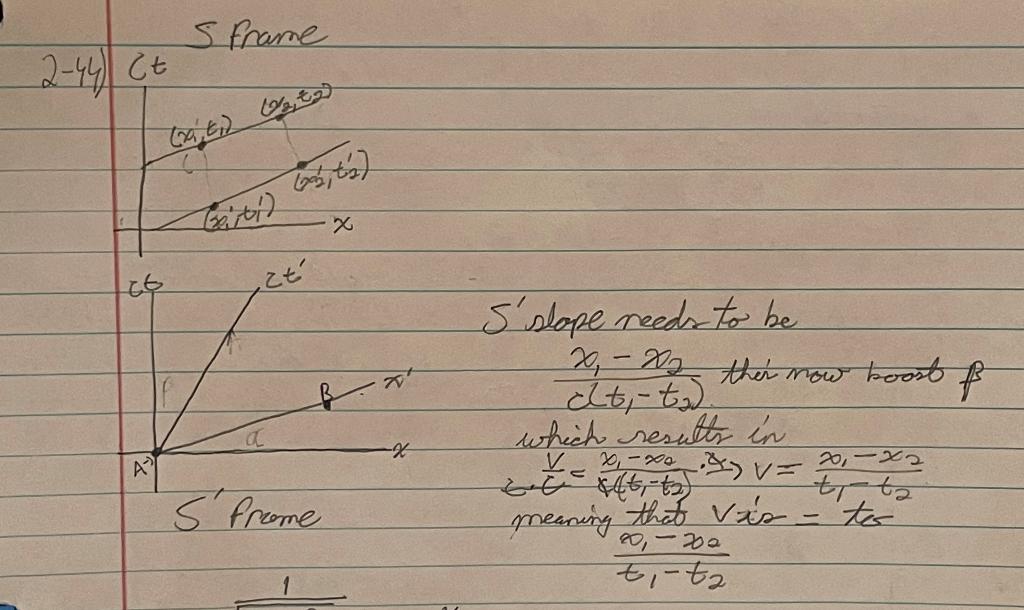 S frame
2-44) Ct
(x₁', t₁) (x₂, t₂)
(x₂', t₂')
(x₁', t₁')
x
ct ct'
x'
B
β
α
A x
S' frame
S' slope needs to be
x₁ - x₂
c(t₁ - t₂) now boost β
which results in
V/c = x₁ - x₂ / c(t₁ - t₂) V = x₁ - x₂ / t₁ - t₂
meaning that V =
x₁ - x₂
t₁ - t₂
1